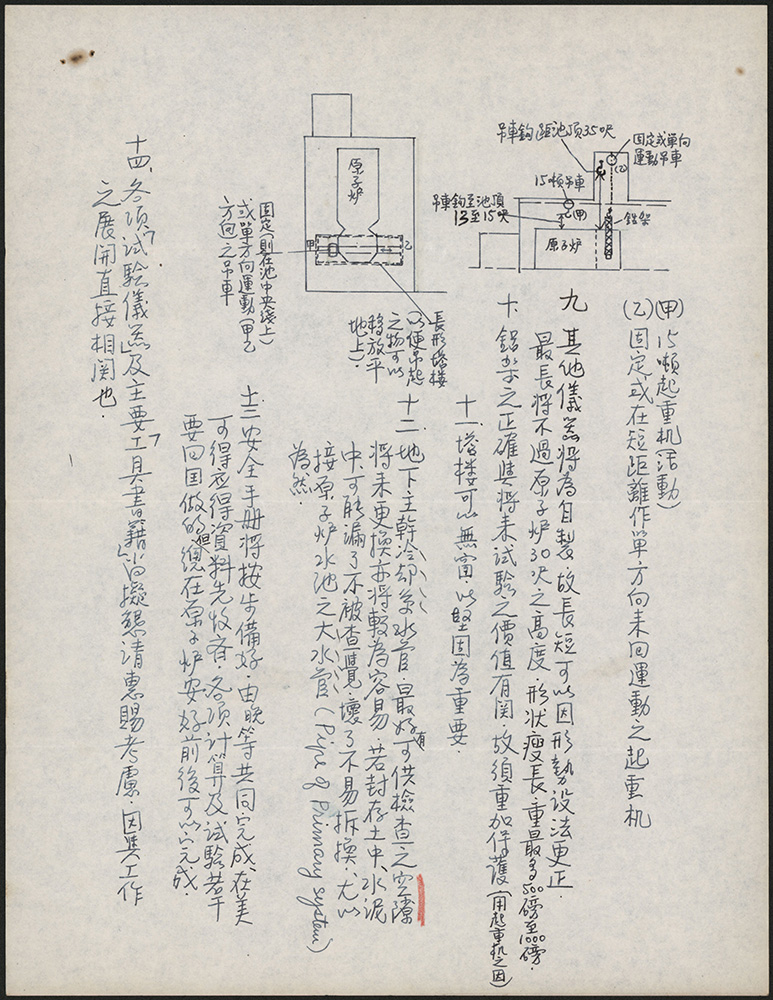 吊車鈎距池頂35呎
固定或單向
運動吊車
(乙)
15噸吊車
(甲)
吊車鈎至池頂
13至15呎
鋁架
原子炉
原子炉
甲
乙
固定(則在池中央綫上)
或單方向運動(甲乙
方向)之吊車
長形塔楼
(以便吊起
之物可以
移放平
地上).
(甲)15噸起重机(活動)
(乙)固定或在短距離作單方向来回運動之起重机
九 其他儀器將為自製.故長短可以因形勢設法更正.
最長將不過原子炉30呎之高度.形状瘦長.重量最多500磅至1000磅.
十.鋁架之正確與將来試驗之價值有関.故須重加保護(用起重机之因)
十一.塔楼可以無窗.以堅固為重要.
十二.地下主幹冷却系水管.最好有可供檢查之空隙
將来更換亦將較為容易.若封存土中、水泥
中.可能漏了不被查覺.壞了不易拆換.尤以
接原子炉水池之大水管(Pipe of Primary system)
為然.
十三 安全手册將按步備好.由晚等共同完成、在美
可得应得資料先收齐.各項計算及試驗若干
要回国做的.但總在原子炉安好前後可以完成.
十四.各項「試驗儀器」及主要「工具書籍」皆擬懇請惠賜考慮.因與工作
之展開直接相関也.